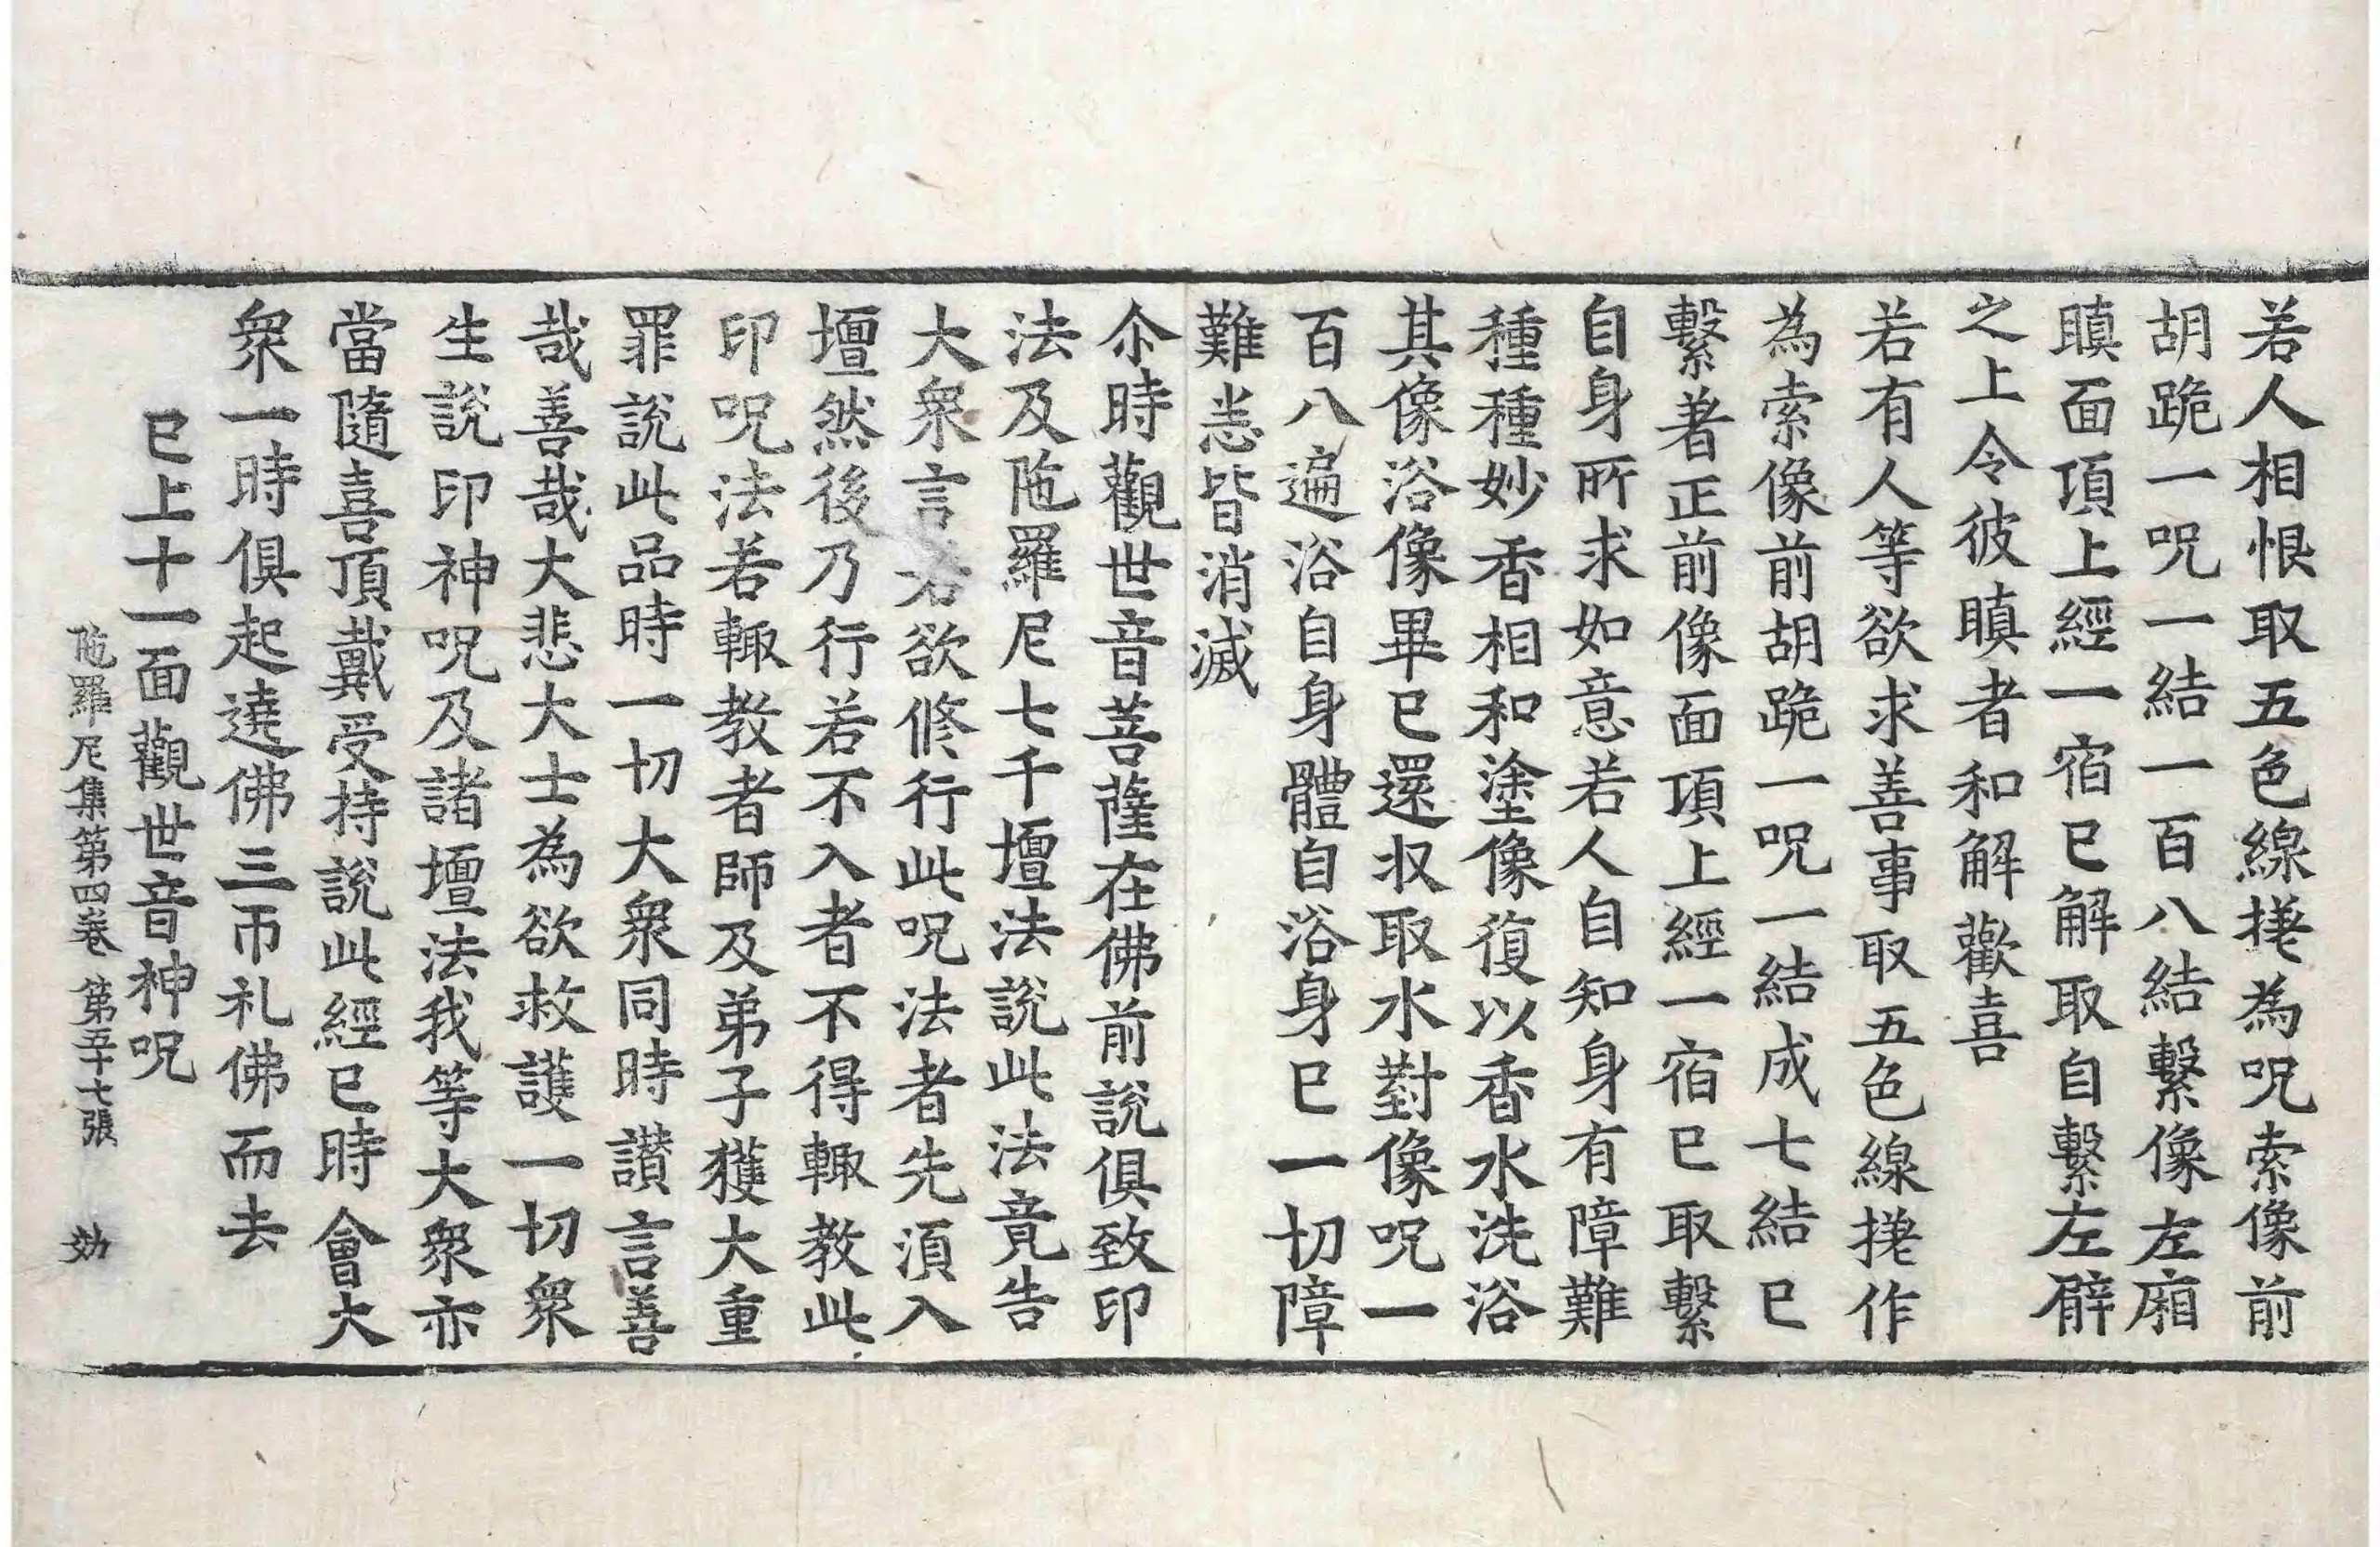 若人相恨取五色線搓為呪索像前
胡跪一呪一結一百八結繫像左廂
瞋面頂上經一宿已解取自繫左臂
之上令彼瞋者和解歡喜
若有人等欲求善事取五色線搓作
為索像前胡跪一呪一結成七結已
繫著正前像面頂上經一宿已取繫
自身所求如意若人自知身有障難
種種妙香相和塗像復以香水洗浴
其像浴像畢已還収取水對像呪一
百八遍浴自身體自浴身已一切障
難恙皆消滅
尒時觀世音菩薩在佛前說俱致印
法及陁羅尼七千壇法說此法竟告
大衆言若欲修行此呪法者先須入
壇然後乃行若不入者不得輙教此
印呪法若輙教者師及弟子獲大重
罪說此品時一切大衆同時讃言善
哉善哉大悲大士為欲救護一切衆
生說印神呪及諸壇法我等大衆亦
當隨喜頂戴受持說此經已時會大
衆一時俱起遶佛三帀礼佛而去
已上十一面觀世音神呪
陁羅尼集第四卷 第五十七張 効